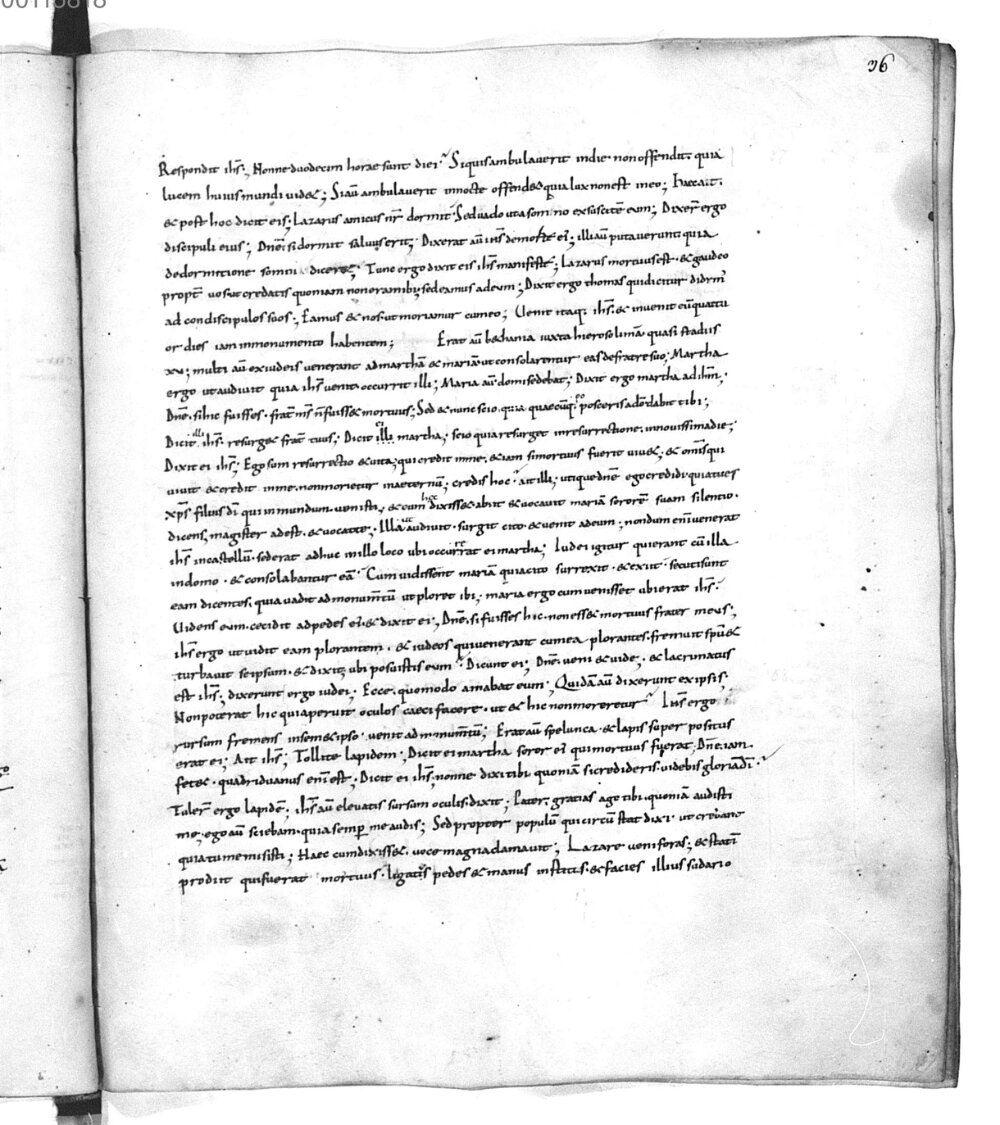 00116818
36
Respondit ihs; Nonne duodecim horae sunt diei? Siquis ambulaverit in die non offendit. quia
lucem huius mundi videt; Si au ambulaverit in nocte offendet quia lux non est in eo; Haec ait.
& post hoc dicit eis; Lazarus amicus nr dormit. Sed vado ut a somno exsuscitem eum; Dixer ergo
discipuli eius; Dne. si dormit salvus erit; Dixerat au ihs de morte ei; illi au putaverunt. quia
de dormitione somni diceret; Tunc ergo dixit eis ihs manifeste; Lazarus mortuus est. & gaudeo
propt vos. ut credatis quoniam non eram ibi; sed eamus ad eum; Dixit ergo thomas qui dicitur didym
ad condiscipulos suos; Eamus & nos. ut moriamur cum eo; Venit itaq. ihs. & invenit eu quattu
or dies iam in monumento habentem; Erat au bethania iuxta hierosolima. quasi stadiis
xv; multi au ex iudeis venerant ad martha & maria. ut consolarentur eas de fratre suo; Martha
ergo ut audivit quia ihs venit. occurrit illi; Maria au. domi sedebat; Dixit ergo martha ad ihm.
Dne. si hic fuisses. frat ms n fuisset mortuus; Sed & nunc scio. quia quaecuq. poposceris a do dabit tibi;
Dicit illi ihs. resurget frat tuus; Dicit ei martha; scio quia resurget in resurrectione. in novissima die;
Dixit ei ihs; Ego sum resurrectio & vita; qui credit in me. etiam si mortuus fuerit vivet; & omis qui
vivit & credit in me. non morietur in aeternu; credis hoc? ait illi; utique dne ego credidi. quia tu es
xps filius di qui in mundum venisti; & cum hec dixisset. abiit & vocavit maria sorore suam silentio.
dicens; magister adest. & vocat te; Illa ut audivit. surgit cito. & venit ad eum; nondum eni venerat
ihs in castellu. sed erat adhuc in illo loco ubi occurrerat ei martha; Iudei igitur qui erant cu illa
in domo. & consolabantur ea. Cum vidissent maria quia cito surrexit. & exiit. secuti sunt
eam dicentes. quia vadit ad monumtu ut ploret ibi; maria ergo cum venisset ubi erat ihs.
Videns eum. cecidit ad pedes ei. & dixit ei; Dne. si fuisses hic. non esset mortuus frater meus;
ihs ergo ut vidit eam plorantem. & iudeos qui venerant cum ea plorantes. fremuit spu &
turbavit se ipsum. & dixit; ubi posuistis eum? Dicunt ei; Dne. veni & vide. & lacrimatus
est ihs; dixerunt ergo iudei; Ecce. quomodo amabat eum; Quida au dixerunt ex ipsis;
Non poterat hic qui aperuit oculos caeci facere. ut & hic non moreretur? Ihs ergo
rursum fremens in semet ipso. venit ad monumtu; Erat au spelunca. & lapis super positus
erat ei; Ait ihs; Tollite lapidem; Dicit ei martha soror ei qui mortuus fuerat; Dne. iam
fetet. quadriduanus eni est; Dicit ei ihs; nonne dixi tibi quonia si credideris. videbis gloria di?
Tuler ergo lapide; ihs au elevatis sursum oculis. dixit; Pater. gratias ago tibi. quonia audisti
me; ego au sciebam. quia semp me audis; Sed propter populu qui circu stat dixi. ut credant
quia tu me misisti; Haec cum dixisset. voce magna clamavit; Lazare veni foras; & stati
prodiit qui fuerat mortuus. ligatus pedes & manus institis. & facies illius sudario